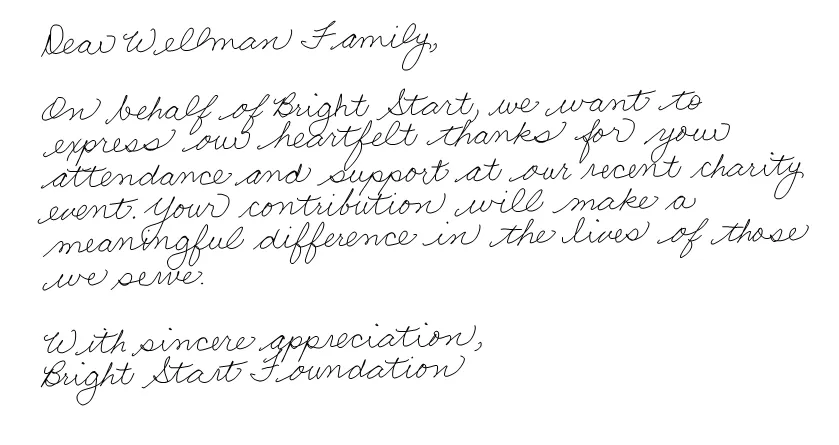 Dear Wellman Family,
On behalf of Bright Start, we want to
express our heartfelt thanks for your
attendance and support at our recent charity
event. Your contribution will make a
meaningful difference in the lives of those
we serve.
With sincere appreciation,
Bright Start Foundation